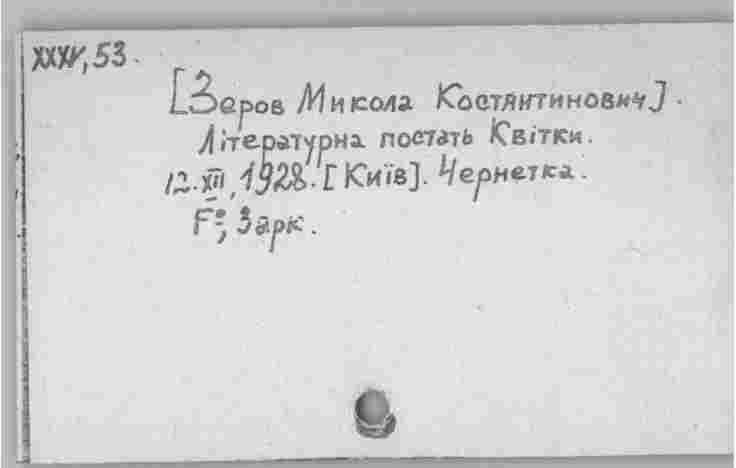 XXXV, 53.
[Зеров Микола Костянтинович].
Літературна постать Квітки.
12.XII, 1928. [Київ]. Чернетка.
F°, 3 арк.